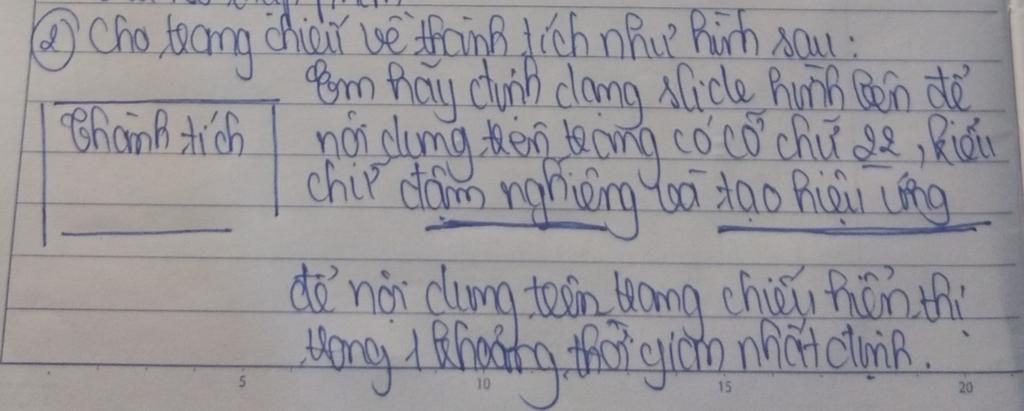 ② Cho trang chiếu về thành tích như hình sau:
Em hãy định dạng slide hình bên để
Thành tích nội dung trên trang có cỡ chữ 22, kiểu
chữ đậm nghiêng và tạo hiệu ứng
để nội dung trên trang chiếu hiển thị
trong 1 khoảng thời gian nhất định.
5 10 15 20